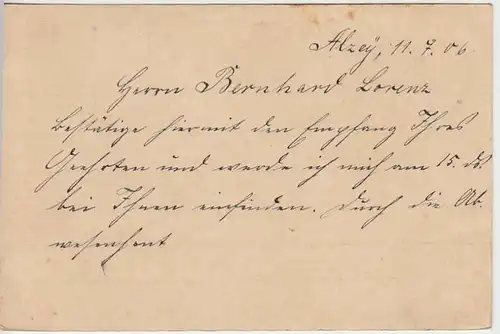 Alzey, 11. 7. 06.
Herrn Bernhard Lorenz
Bestätige hiermit den Empfang Ihres
Geehrten und werde ich mich am 15. ds.
bei Ihnen einfinden. Durch die Ab-
wesenheit